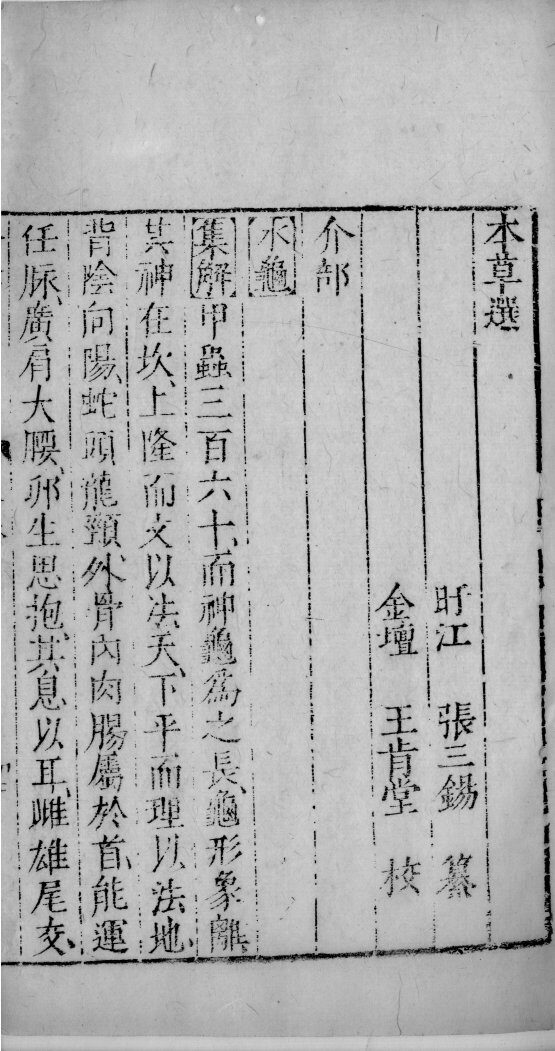 本草選
盱江　張三錫　纂
金壇　王肯堂　校
介部
水龜
集解甲蟲三百六十、而神龜爲之長、龜形象離、
其神在坎、上隆而文以法天、下平而理以法地、
背陰向陽、蛇頭龍頸、外骨內肉、腸屬於首、能運
任脉、廣肩大腰、卵生思抱、其息以耳、雌雄尾交、